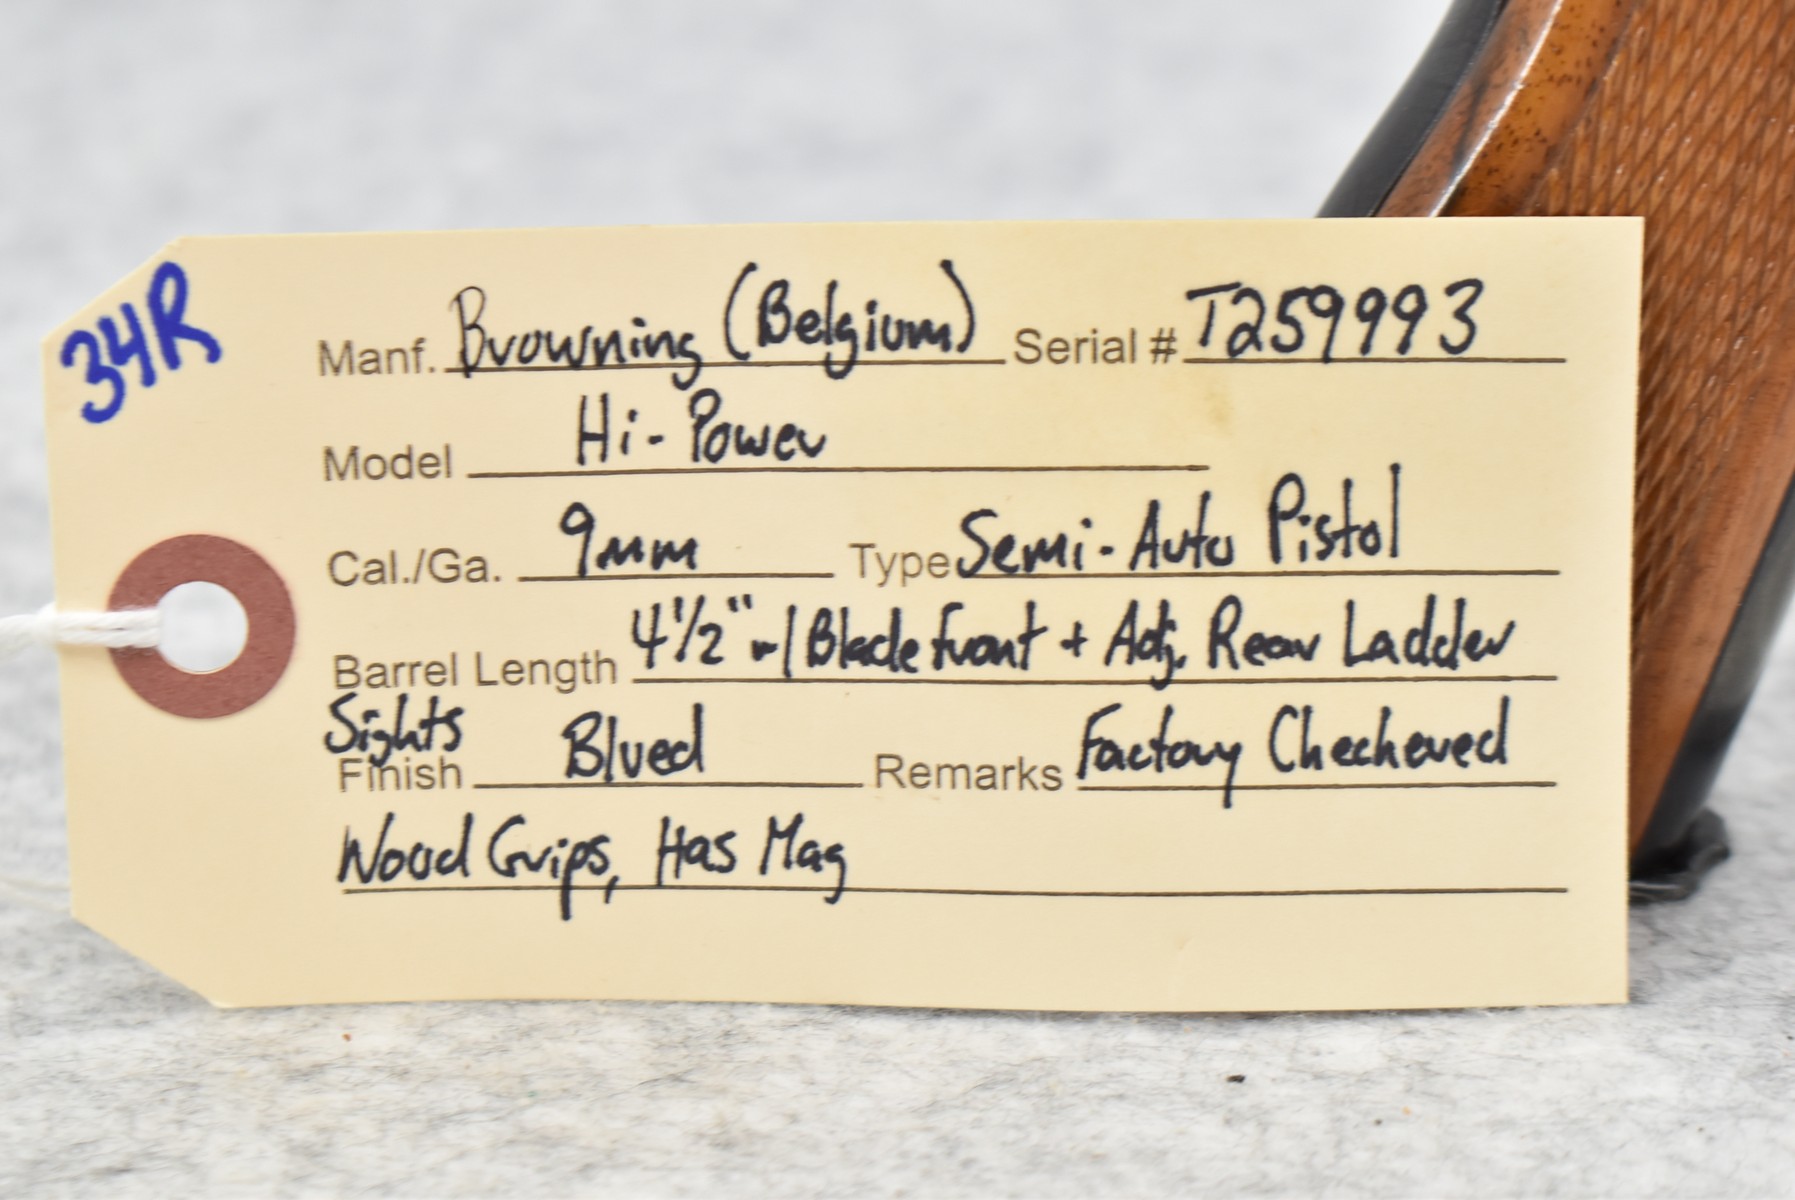 34R
Manf. Browning (Belgium) Serial # T259993
Model Hi-Power
Cal./Ga. 9mm Type Semi-Auto Pistol
Barrel Length 4 1/2" w/ Blade Front + Adj. Rear Ladder
Sights
Finish Blued Remarks Factory Checkered
Wood Grips, Has Mag